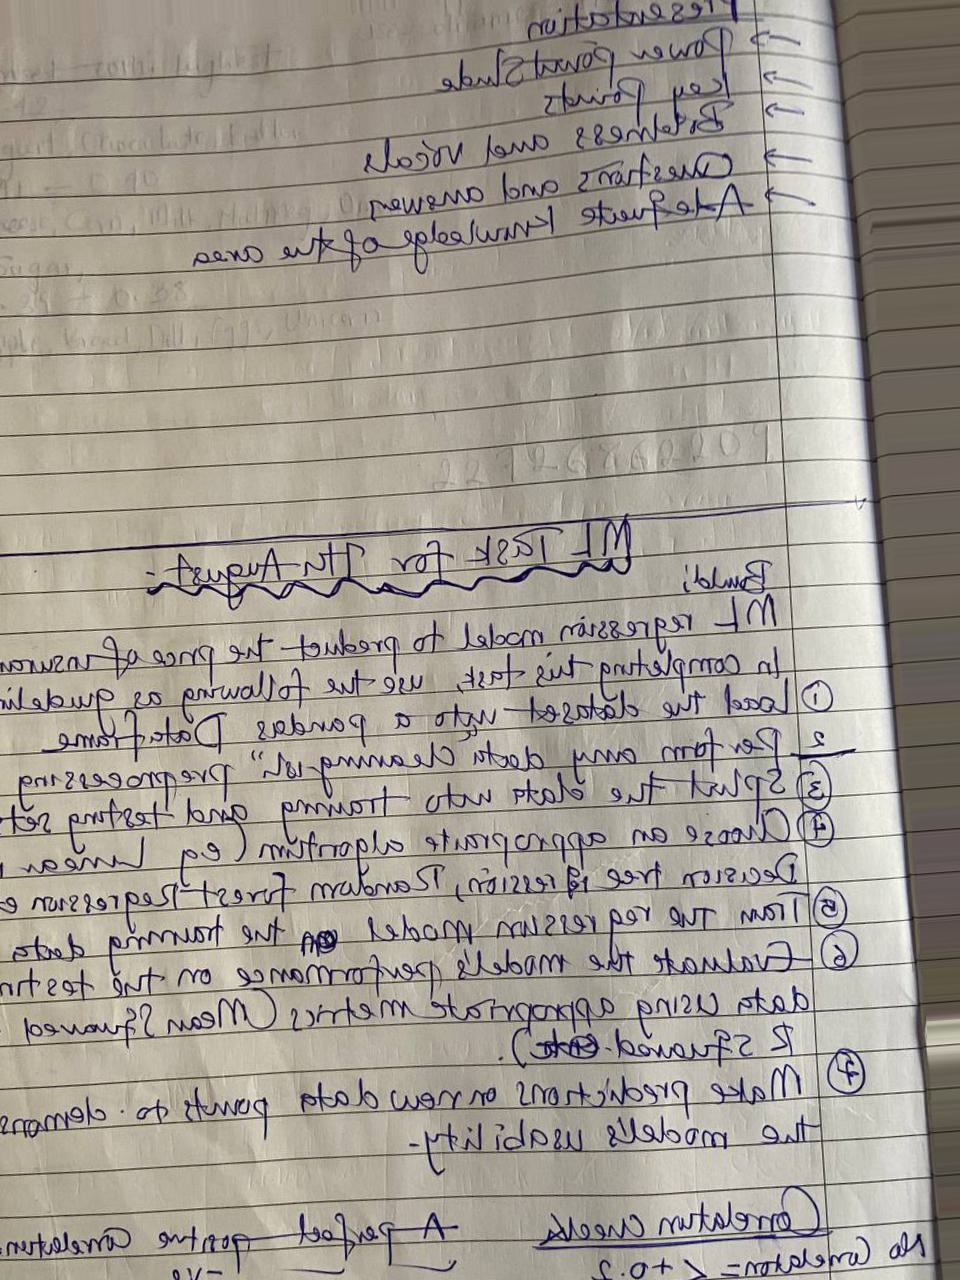 Presentation
→ Power point Slide
→ Key Points
→ Boldness and voice
→ Questions and answer
→ Adequate knowledge of the area
ML Test for 7th August
Build:
ML regression model to predict the price of
In completing this test, use the following as guideli
① Load the dataset into a pandas DataFrame
2 Perform any data cleaning or preprocessing
③ Split the data into training and testing set
④ Choose an appropriate algorithm (eg Linear
Decision tree regression, Random Forest Regression
⑤ Train the regression Model on the training data
⑥ Evaluate the model's performance on the testin
data using appropriate metrics (Mean Squared
R squared).
⑦ Make predictions on new data points to
the model's usability.
Correlation Check A perfect positive Correlation
No Correlation = < +0.5 -ve